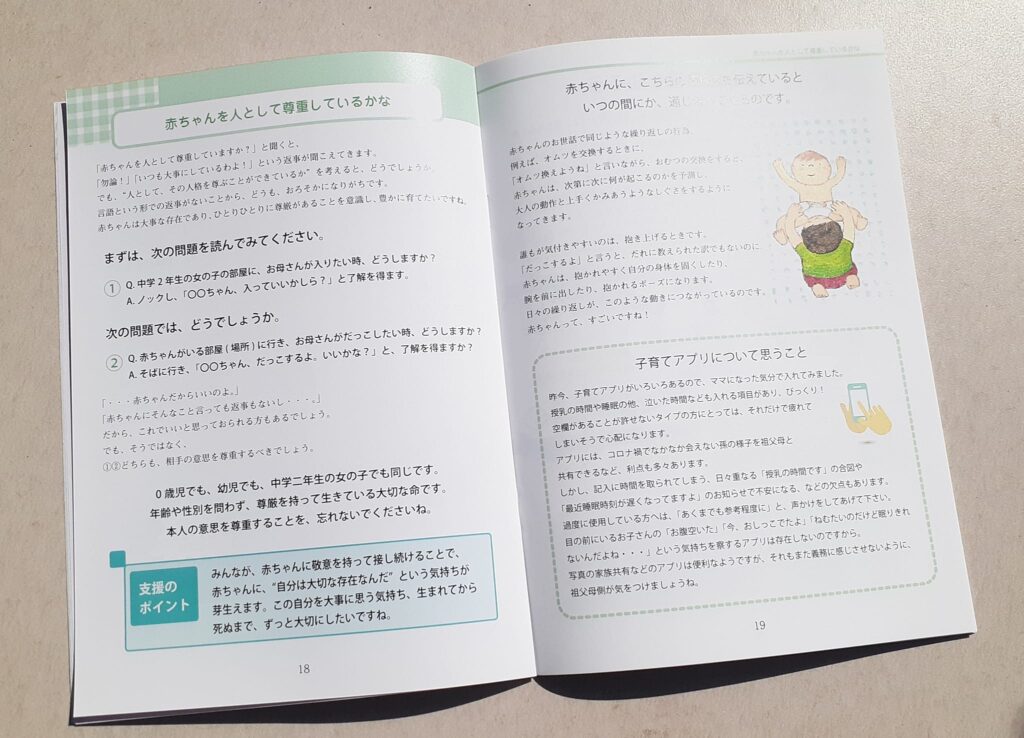 赤ちゃんを人として尊重しているかな
「赤ちゃんを人として尊重していますか？」と聞くと、
「勿論！」「いつも大事にしているわよ！」という返事が聞こえてきます。
でも、“人として、その人格を尊ぶことができているか” を考えると、どうでしょうか。
言語という形での返事がないことから、どうも、おろそかになりがちです。
赤ちゃんは大事な存在であり、ひとりひとりに尊厳があることを意識し、豊かに育てたいですね。
まずは、次の問題を読んでみてください。
① Q. 中学２年生の女の子の部屋に、お母さんが入りたい時、どうしますか？
A. ノックし、「〇〇ちゃん、入っていいかしら？」と了解を得ます。
次の問題では、どうでしょうか。
② Q. 赤ちゃんがいる部屋 ( 場所 ) に行き、お母さんがだっこしたい時、どうしますか？
A. そばに行き、「〇〇ちゃん、だっこするよ。いいかな？」と、了解を得ますか？
「・・・赤ちゃんだからいいのよ。」
「赤ちゃんにそんなこと言っても返事もないし・・・。」
だから、これでいいと思っておられる方もあるでしょう。
でも、そうではなく、
①②どちらも、相手の意思を尊重するべきでしょう。
０歳児でも、幼児でも、中学二年生の女の子でも同じです。
年齢や性別を問わず、尊厳を持って生きている大切な命です。
本人の意思を尊重することを、忘れないでくださいね。
支援の
ポイント
みんなが、赤ちゃんに敬意を持って接し続けることで、
赤ちゃんに、“自分は大切な存在なんだ” という気持ちが
芽生えます。この自分を大事に思う気持ち、生まれてから
死ぬまで、ずっと大切にしたいですね。
18
赤ちゃんを人として尊重しているかな
赤ちゃんに、こちらの を伝えていると
いつの間にか、通じ のです。
赤ちゃんのお世話で同じような繰り返しの行為、
例えば、オムツを交換するときに、
「オムツ換えようね」と言いながら、おむつの交換をすると、
赤ちゃんは、次第に次に何が起こるのかを予測し、
大人の動作と上手くかみあうようなしぐさをするように
なってきます。
誰もが気付きやすいのは、抱き上げるときです。
「だっこするよ」と言うと、だれに教えられた訳でもないのに、
赤ちゃんは、抱かれやすく自分の身体を固くしたり、
腕を前に出したり、抱かれるポーズになります。
日々の繰り返しが、このような動きにつながっているのです。
赤ちゃんって、すごいですね！
子育てアプリについて思うこと
昨今、子育てアプリがいろいろあるので、ママになった気分で入れてみました。
授乳の時間や睡眠の他、泣いた時間なども入れる項目があり、びっくり！
空欄があることが許せないタイプの方にとっては、それだけで疲れて
しまいそうで心配になります。
アプリには、コロナ禍でなかなか会えない孫の様子を祖父母と
共有できるなど、利点も多々あります。
しかし、記入に時間を取られてしまう、日々重なる「授乳の時間です」の合図や
「最近睡眠時刻が遅くなってますよ」のお知らせで不安になる、などの欠点もあります。
過度に使用している方へは、「あくまでも参考程度に」と、声かけをしてあげて下さい。
目の前にいるお子さんの「お腹空いた」「今、おしっこでたよ」「ねむたいのだけど眠りきれ
ないんだよね・・・」という気持ちを察するアプリは存在しないのですから。
写真の家族共有などのアプリは便利なようですが、それもまた義務に感じさせないように、
祖父母側が気をつけましょうね。
19